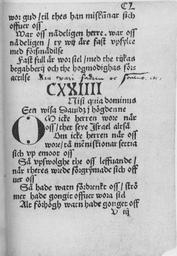 CL
wor gud / til thes han miskunar sich
offuer oss
War oss nådeligen herre. war oss
nådeligen / ty wij äre fast vpfylte
med försmädilse
Fast full är wor siel / med the rijkas
begabberij och the hogmodighas förs
actilse
CXXIIII
Nisi quia dominus
Een wisa Dauidz / högdenne
Om icke herren wore när
oss / ther seye Israel altså
Om icke herren när oss
wore / tå menniskionar settia
sich vp emoot oss
Så vpswolghe the oss leffuande /
när theres wrede förgrymade sich off
uer oss
Så hade watn fördrenkt oss / strö
mer hade gongit offuer wora siel
Alt förhögh watn hade gonget off
V iij